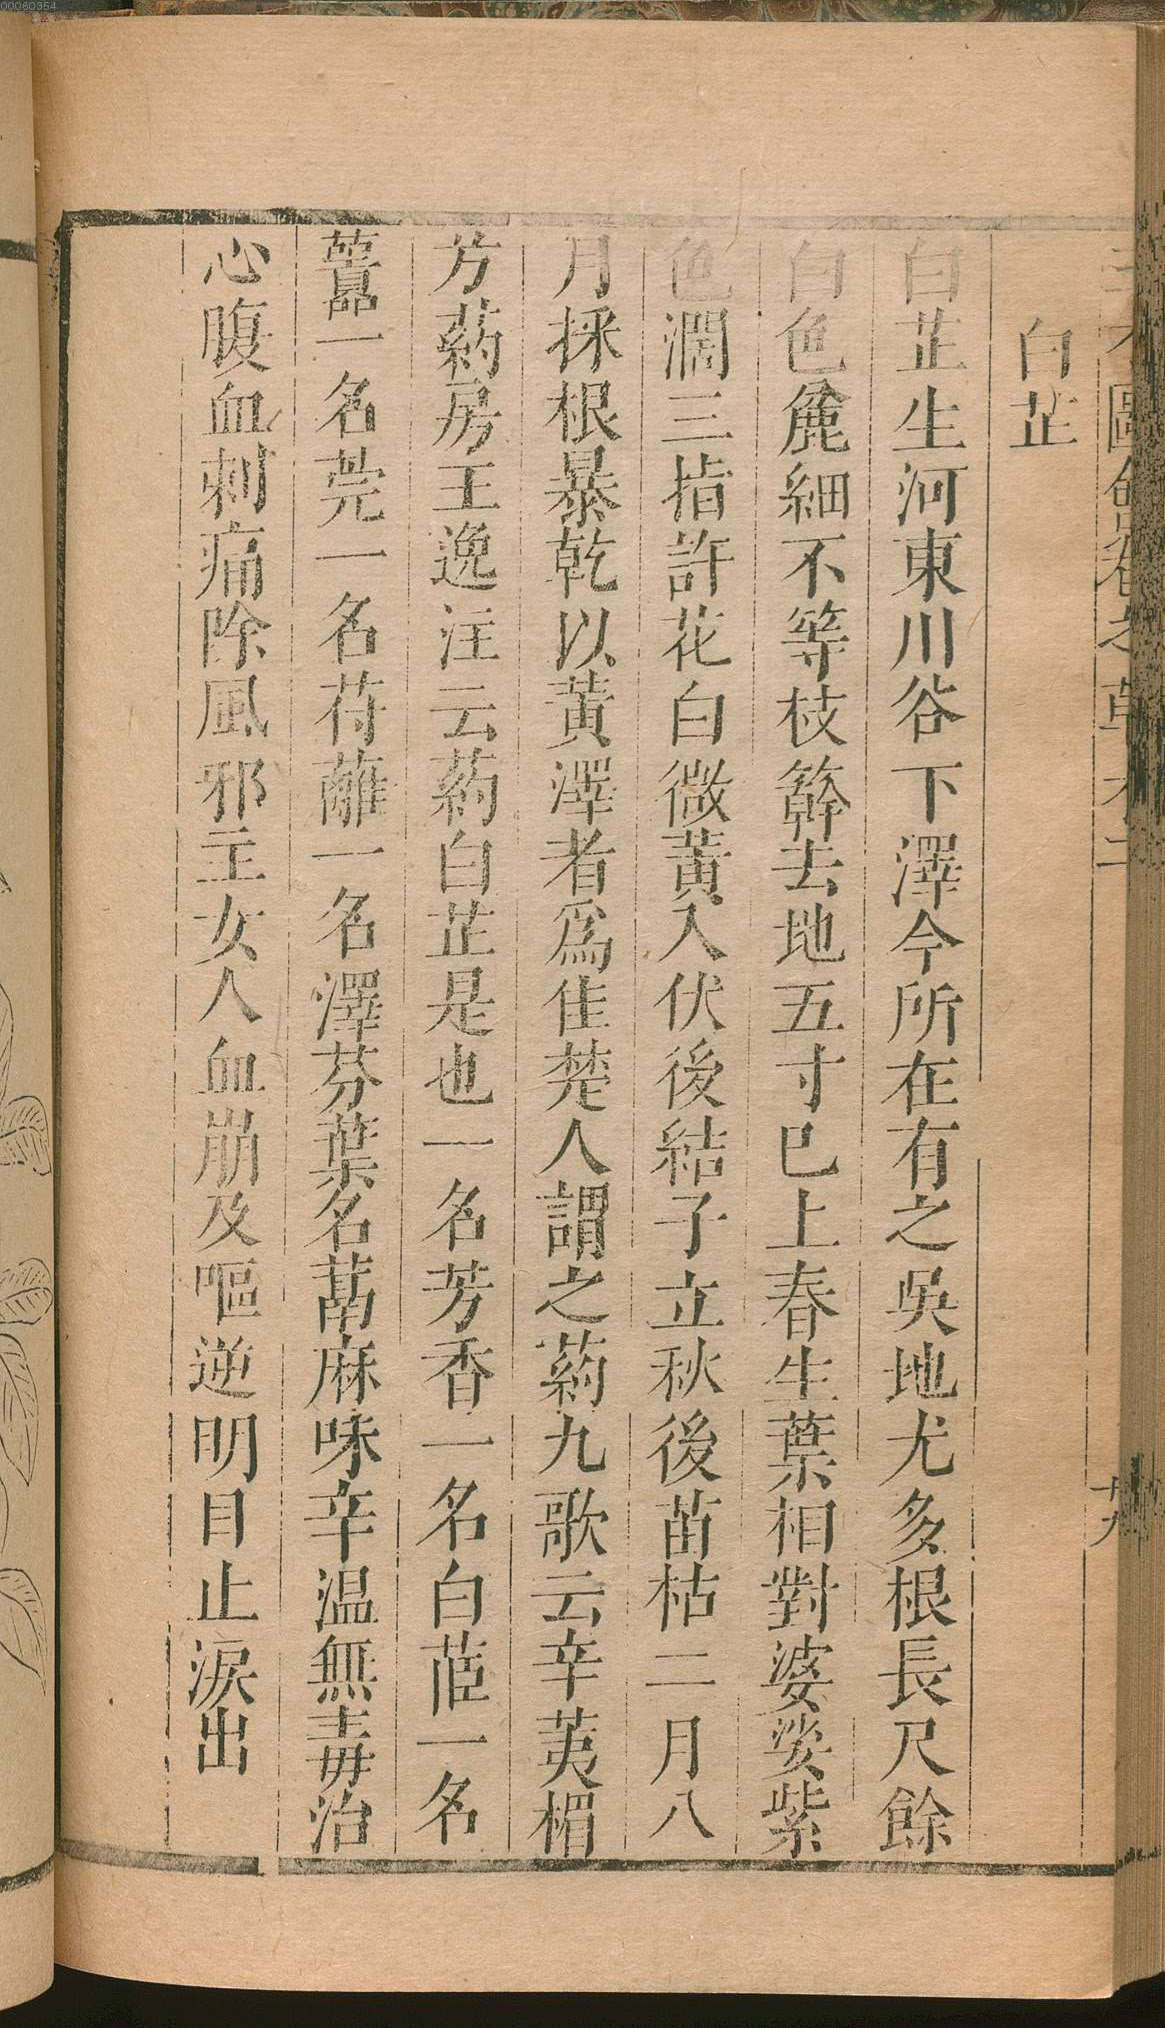 00060354
白芷
白芷生河東川谷下澤今所在有之吳地尤多根長尺餘
白色麄細不等枝簳去地五寸巳上春生葉相對婆娑紫
色濶三指許花白微黃入伏後結子立秋後苗枯二月八
月採根暴乾以黃澤者爲佳楚人謂之葯九歌云辛荑楣
方葯房王逸注云葯白芷是也一名芳香一名白茝一名
虈一名莞一名苻蘺一名澤芬葉名蒚麻味辛温無毒治
心腹血刺痛除風邪主女人血崩及嘔逆明目止淚出